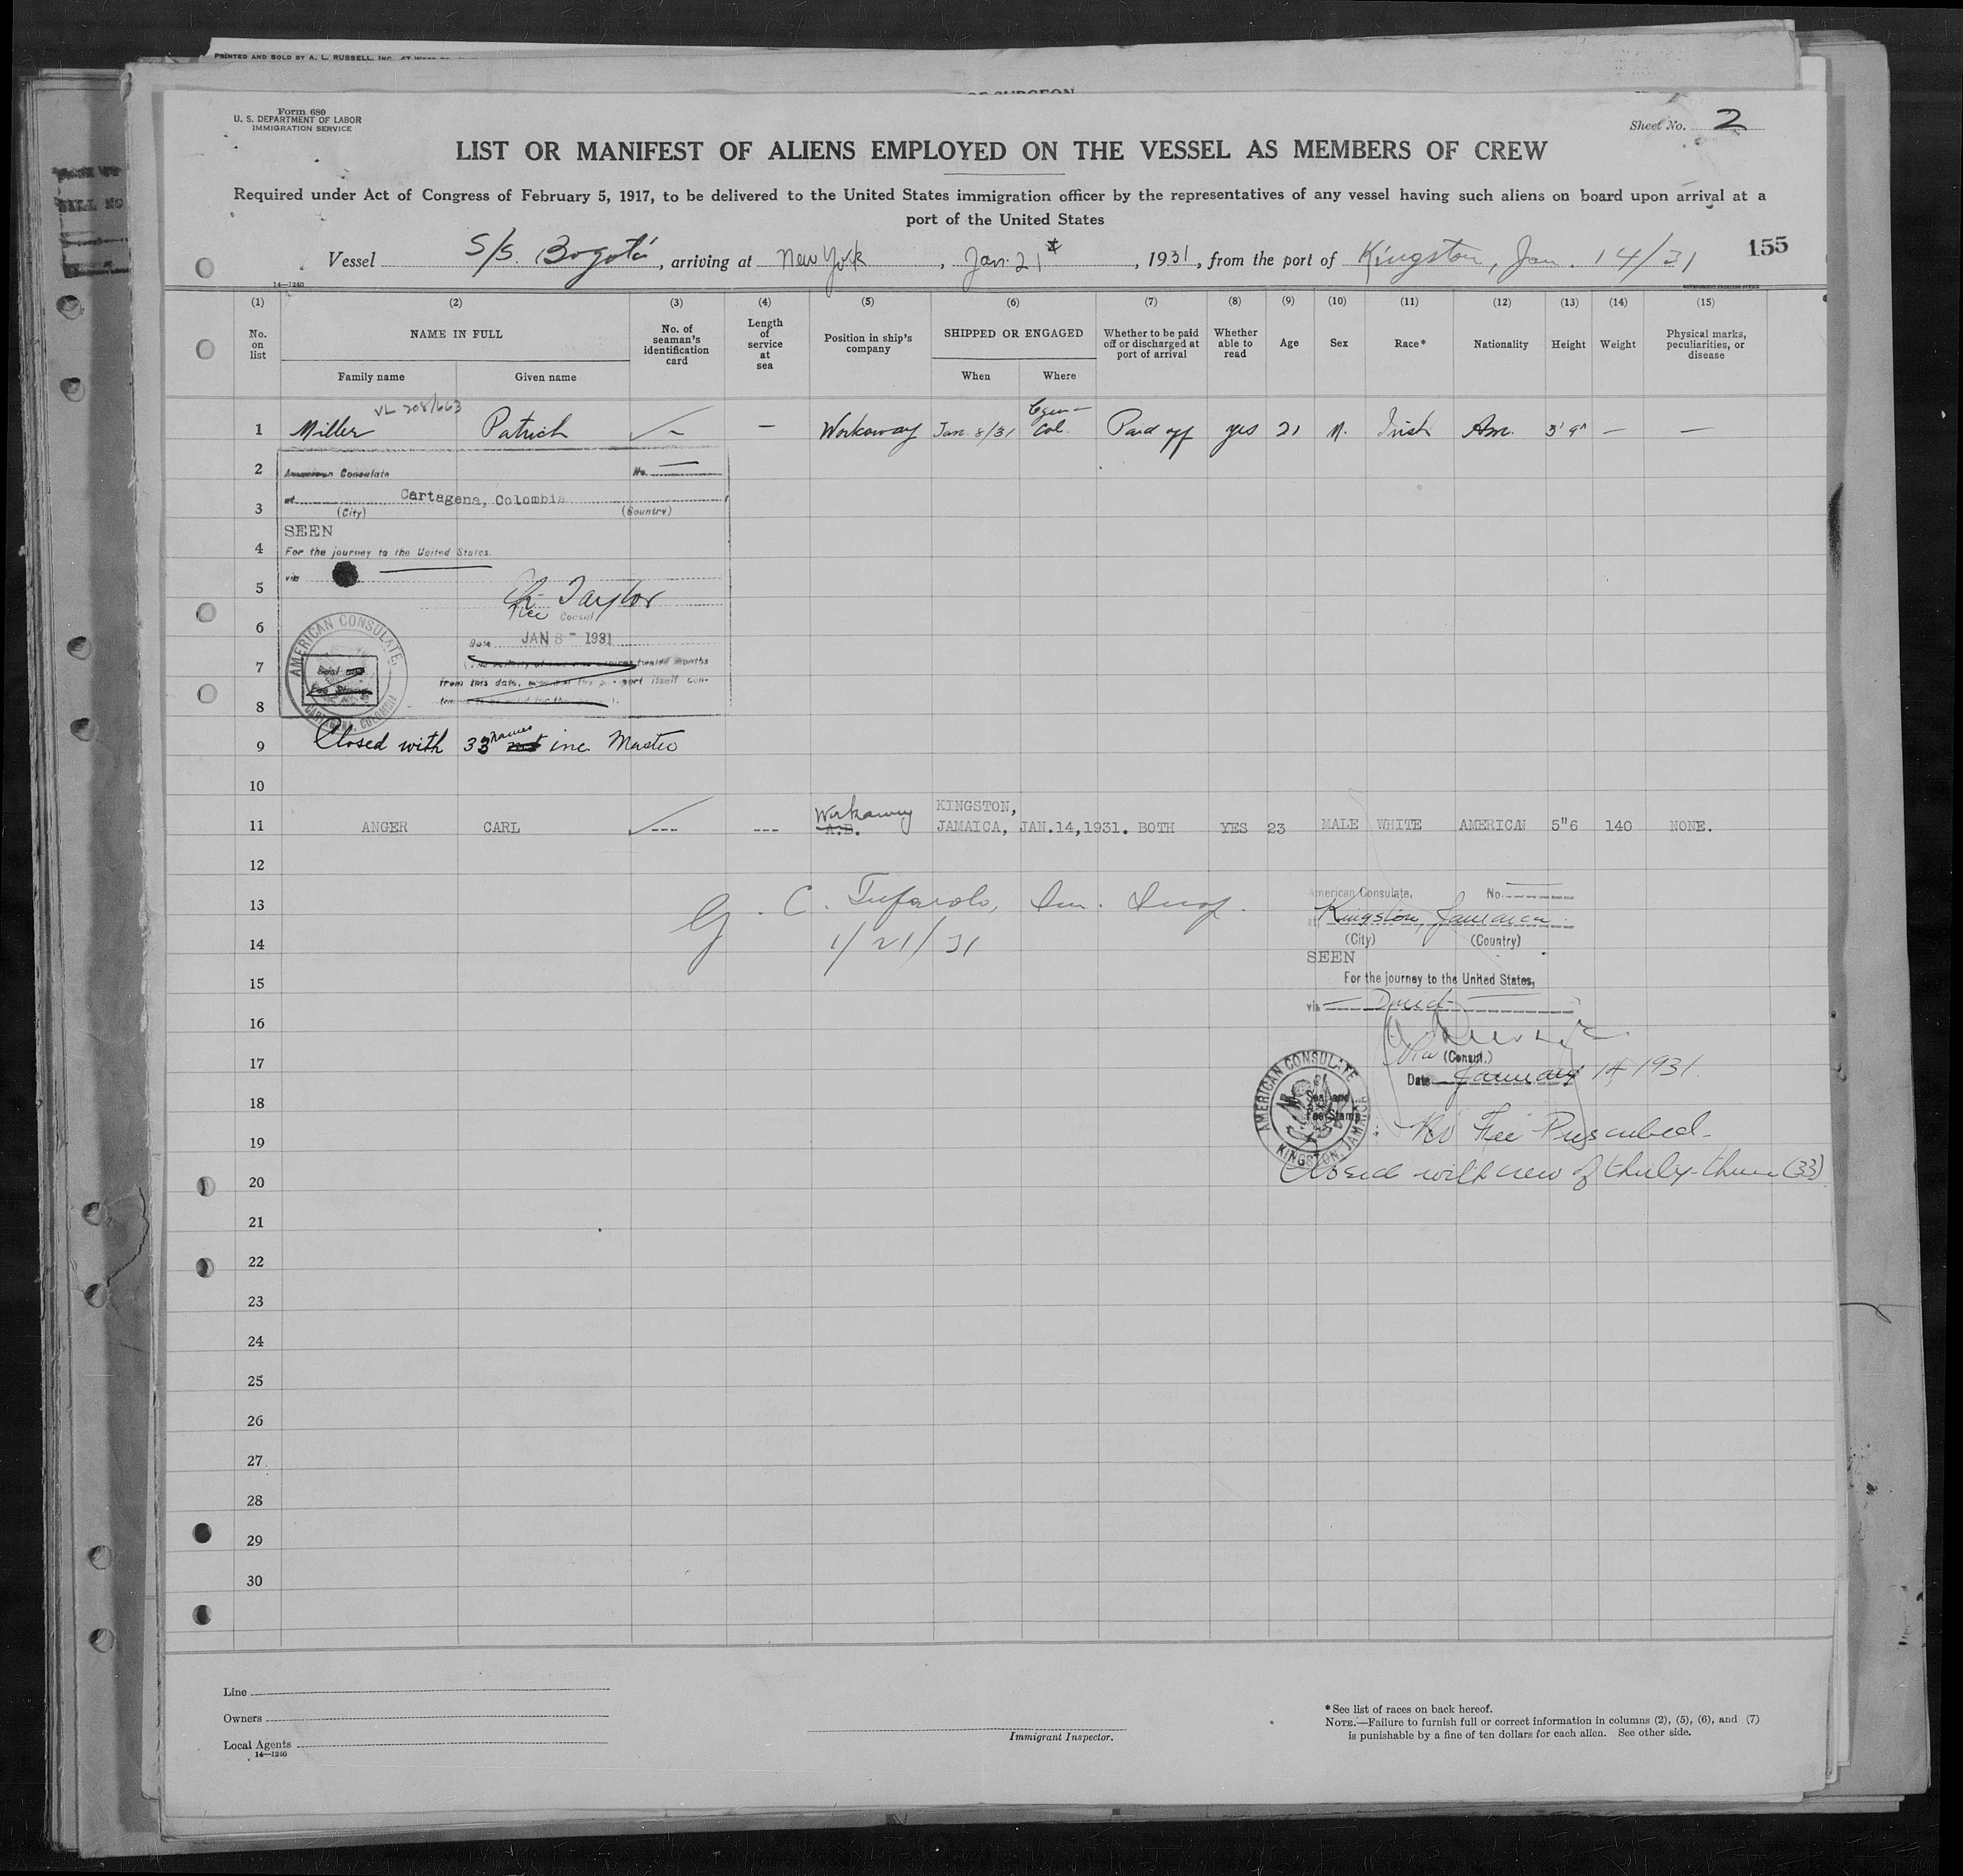 PRINTED AND SOLD BY A. L. RUSSELL, INC.
OF SURGEON
Form 680
U. S. DEPARTMENT OF LABOR
IMMIGRATION SERVICE
Sheet No. 2
LIST OR MANIFEST OF ALIENS EMPLOYED ON THE VESSEL AS MEMBERS OF CREW
Required under Act of Congress of February 5, 1917, to be delivered to the United States immigration officer by the representatives of any vessel having such aliens on board upon arrival at a
port of the United States
155
Vessel S/S. Bogotá, arriving at New York, Jan. 21st, 1931, from the port of Kingston, Jan. 14/31
14—1240
(1) (2) (3) (4) (5) (6) (7) (8) (9) (10) (11) (12) (13) (14) (15)
No. on list NAME IN FULL No. of seaman's identification card Length of service at sea Position in ship's company SHIPPED OR ENGAGED Whether to be paid off or discharged at port of arrival Whether able to read Age Sex Race* Nationality Height Weight Physical marks, peculiarities, or disease
Family name Given name When Where
VL 208/663
1 Miller Patrick — — Workaway Jan. 8/31 Col. Paid off yes 21 M. Irish Am. 5' 9" — —
2 American Consulate No. —
at Cartagena, Colombia
3 (City) (Country)
SEEN
4 For the journey to the United States.
via
5 Taylor
Vice Consul
6 AMERICAN CONSULATE, CARTAGENA, COLOMBIA
Date JAN 8 - 1931
7 twelve months
from this date, itself con-
8
9 Closed with 33 names inc. Master
10
KINGSTON,
11 ANGER CARL --- --- Workaway A.B. JAMAICA, JAN.14,1931. BOTH YES 23 MALE WHITE AMERICAN 5"6 140 NONE.
12
American Consulate, No. —
13 G. C. Imm. Insp.
at Kingston, Jamaica
14 1/21/31
(City) (Country)
SEEN
15 For the journey to the United States,
via — Direct —
16
17 Vice (Consul.)
Date January 14 1931.
18 AMERICAN CONSULATE KINGSTON, JAMAICA
Seal and
Fee Stamp
19 No Fee Prescribed.
20 Closed with crew of thirty-three (33)
21
22
23
24
25
26
27
28
29
30
Line
Owners
Local Agents
14—1240
Immigrant Inspector.
*See list of races on back hereof.
NOTE.—Failure to furnish full or correct information in columns (2), (5), (6), and (7)
is punishable by a fine of ten dollars for each alien. See other side.